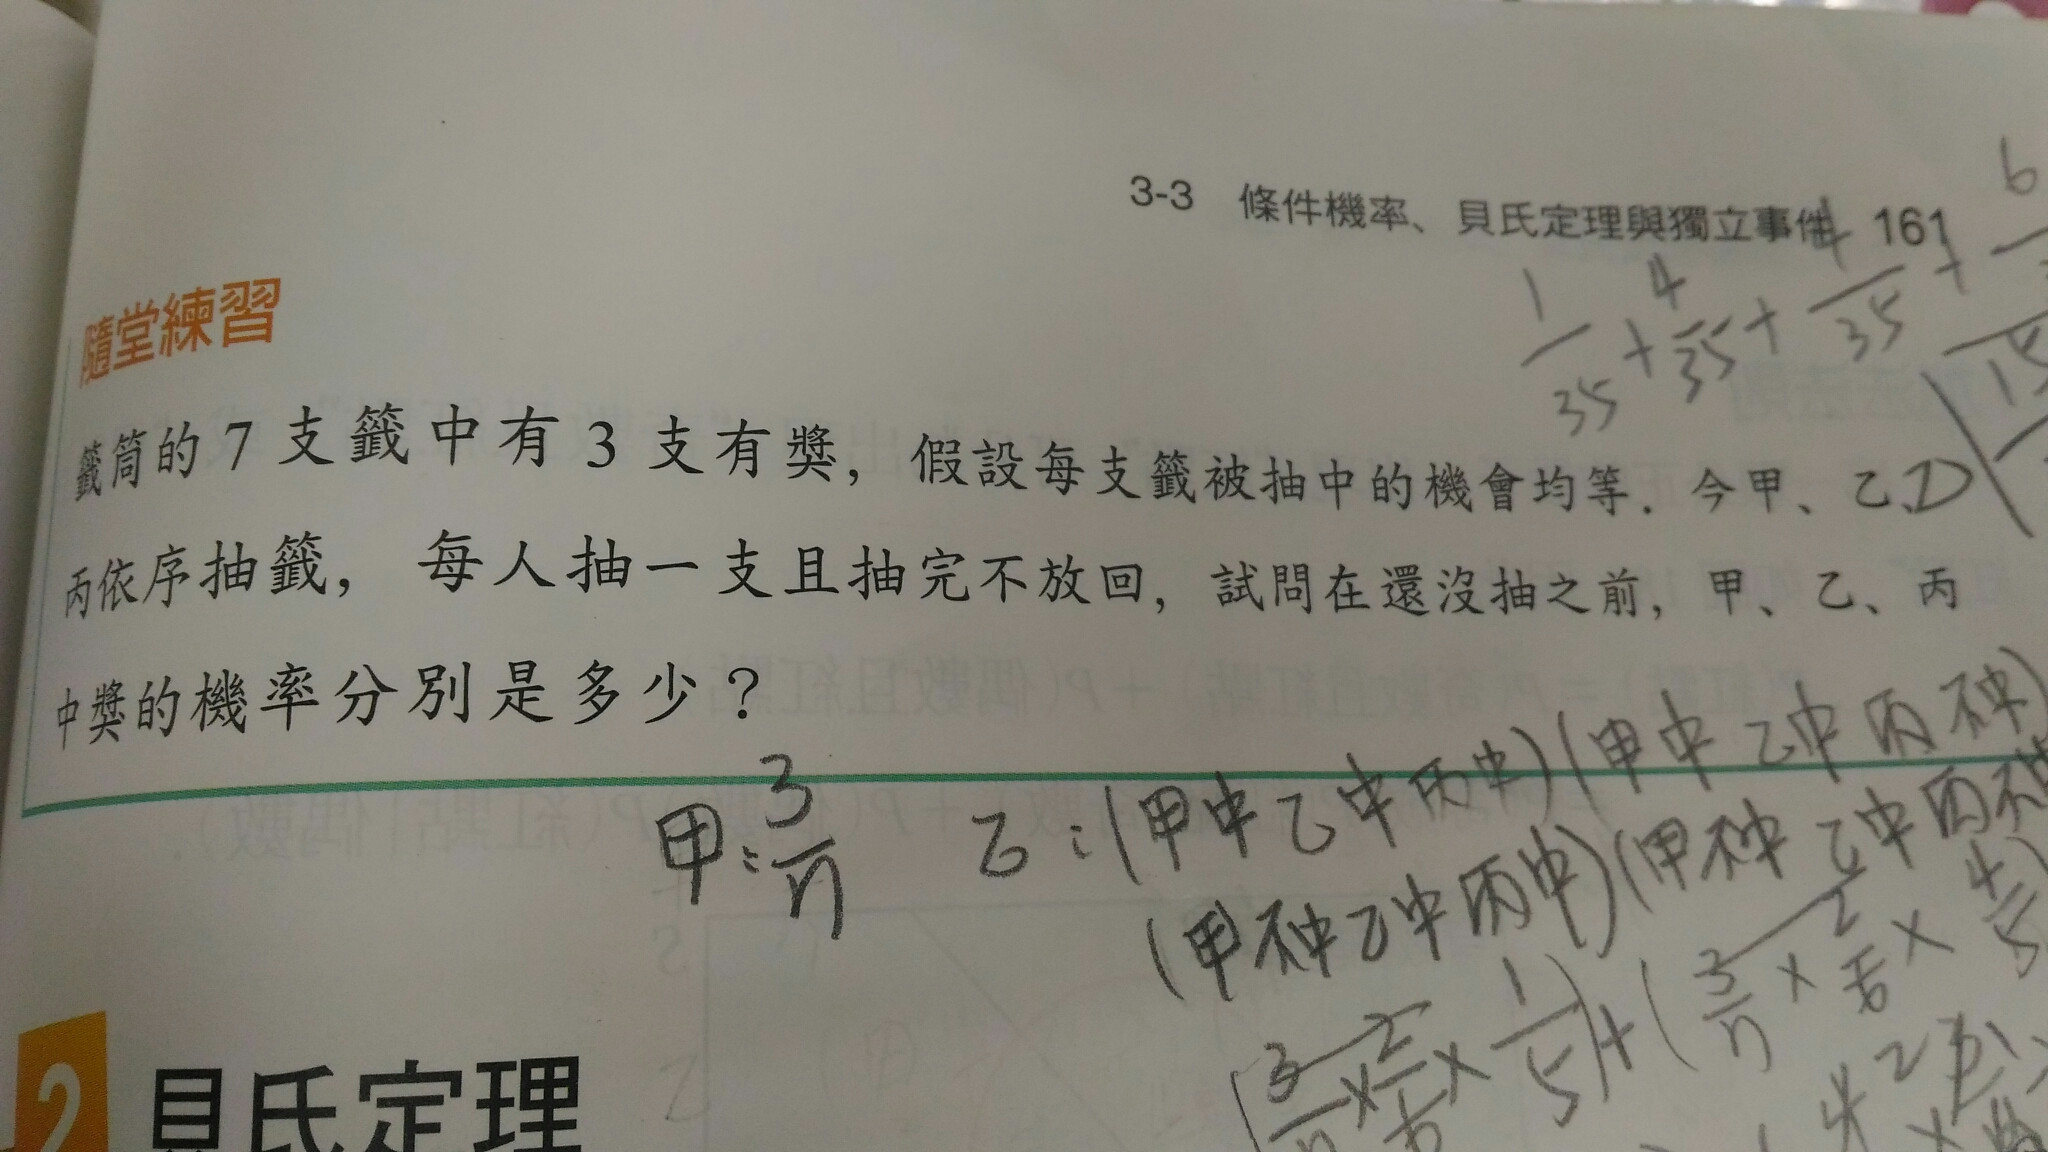 3-3 條件機率、貝氏定理與獨立事件 161
隨堂練習
籤筒的 7 支籤中有 3 支有獎，假設每支籤被抽中的機會均等．今甲、乙、
丙依序抽籤，每人抽一支且抽完不放回，試問在還沒抽之前，甲、乙、丙
中獎的機率分別是多少？
1/35 + 4/35 + 4/35 + 6
15
甲：3/7 乙：(甲中乙中丙中)(甲中乙中丙不中)
(甲不中乙中丙中)(甲不中乙中丙不中
(3/7×2/6×1/5)+(3/7×2/6×4/5
2 貝氏定理